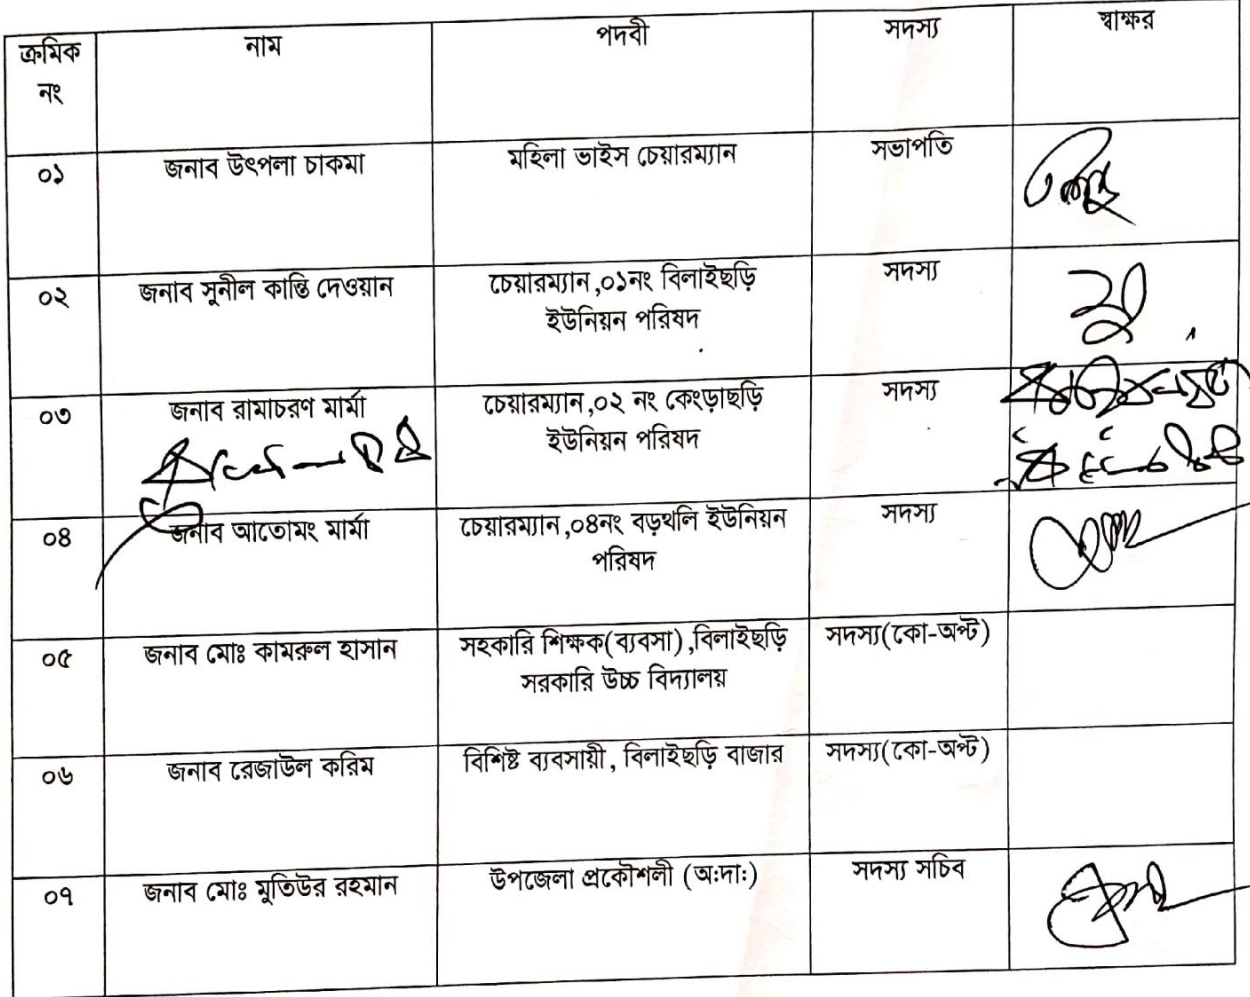 ক্রমিক নং | নাম | পদবী | সদস্য | স্বাক্ষর
০১ | জনাব উৎপলা চাকমা | মহিলা ভাইস চেয়ারম্যান | সভাপতি
০২ | জনাব সুনীল কান্তি দেওয়ান | চেয়ারম্যান,০১নং বিলাইছড়ি | সদস্য
ইউনিয়ন পরিষদ
০৩ | জনাব রামাচরণ মার্মা | চেয়ারম্যান,০২ নং কেংড়াছড়ি | সদস্য
ইউনিয়ন পরিষদ
০৪ | জনাব আতোমং মার্মা | চেয়ারম্যান,০৪নং বড়থলি ইউনিয়ন | সদস্য
পরিষদ
০৫ | জনাব মোঃ কামরুল হাসান | সহকারি শিক্ষক(ব্যবসা),বিলাইছড়ি | সদস্য(কো-অপ্ট)
সরকারি উচ্চ বিদ্যালয়
০৬ | জনাব রেজাউল করিম | বিশিষ্ট ব্যবসায়ী, বিলাইছড়ি বাজার | সদস্য(কো-অপ্ট)
০৭ | জনাব মোঃ মুতিউর রহমান | উপজেলা প্রকৌশলী (অ:দা:) | সদস্য সচিব